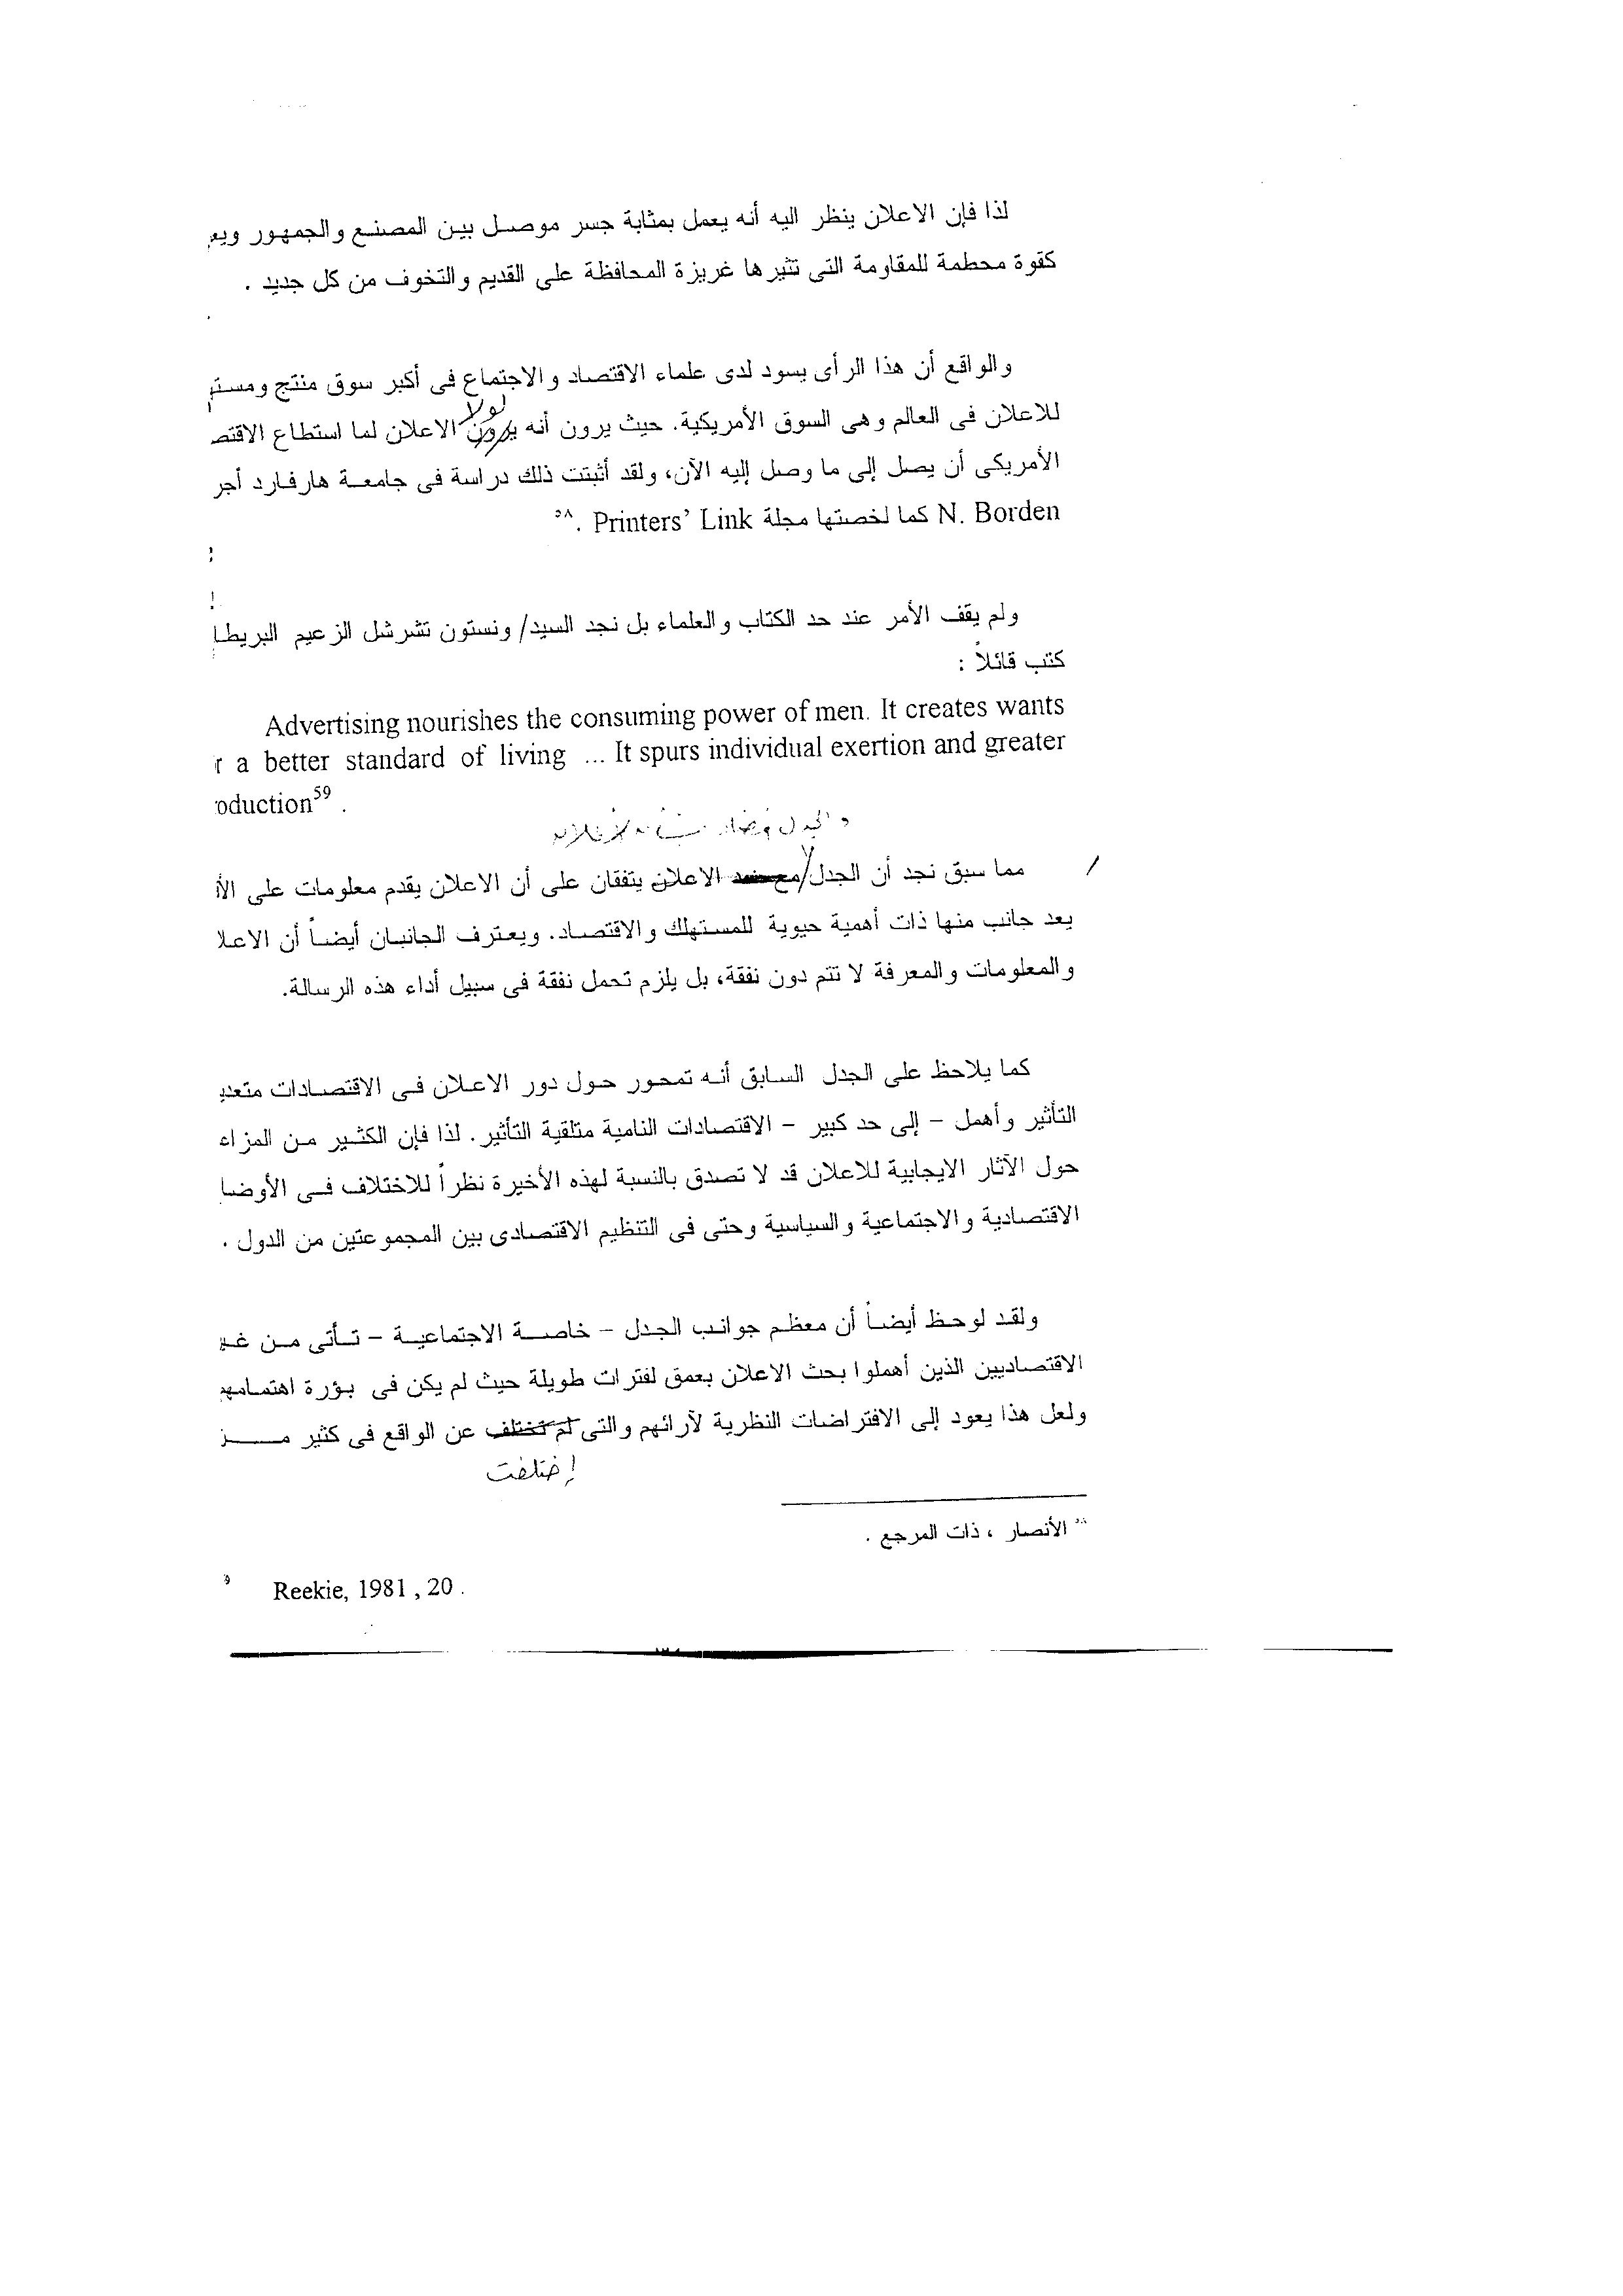 لذا فإن الاعلان ينظر اليه أنه يعمل بمثابة جسر موصل بين المصنع والجمهور
كقوة محطمة للمقاومة التى تثيرها غريزة المحافظة على القديم والتخوف من كل جديد .
والواقع أن هذا الرأى يسود لدى علماء الاقتصاد والاجتماع فى أكبر سوق منتج
لولا
للاعلان فى العالم وهى السوق الأمريكية. حيث يرون أنه يرون الاعلان لما استطاع
الأمريكى أن يصل إلى ما وصل إليه الآن، ولقد أثبتت ذلك دراسة فى جامعة هارفارد
N. Borden كما لخصتها مجلة Printers' Link .٥٨
ولم يقف الأمر عند حد الكتاب والعلماء بل نجد السيد/ ونستون تشرشل الزعيم
كتب قائلاً :
Advertising nourishes the consuming power of men. It creates wants
a better standard of living ... It spurs individual exertion and greater
oduction59 .
مما سبق نجد أن الجدل مع الاعلان يتفقان على أن الاعلان يقدم معلومات على
يعد جانب منها ذات أهمية حيوية للمستهلك والاقتصاد. ويعترف الجانبان أيضاً أن
والمعلومات والمعرفة لا تتم دون نفقة، بل يلزم تحمل نفقة فى سبيل أداء هذه الرسالة.
كما يلاحظ على الجدل السابق أنه تمحور حول دور الاعلان فى الاقتصادات
التأثير وأهمل – إلى حد كبير – الاقتصادات النامية متلقية التأثير. لذا فإن الكثير من
حول الآثار الايجابية للاعلان قد لا تصدق بالنسبة لهذه الأخيرة نظراً للاختلاف فى
الاقتصادية والاجتماعية والسياسية وحتى فى التنظيم الاقتصادى بين المجموعتين من الدول .
ولقد لوحظ أيضاً أن معظم جوانب الجدل – خاصة الاجتماعية – تأتى من
الاقتصاديين الذين أهملوا بحث الاعلان بعمق لفترات طويلة حيث لم يكن فى بؤرة
ولعل هذا يعود إلى الافتراضات النظرية لآرائهم والتى لم تختلف عن الواقع فى كثير
إختلفت
٥٨ الأنصار ، ذات المرجع .
Reekie, 1981 , 20 .